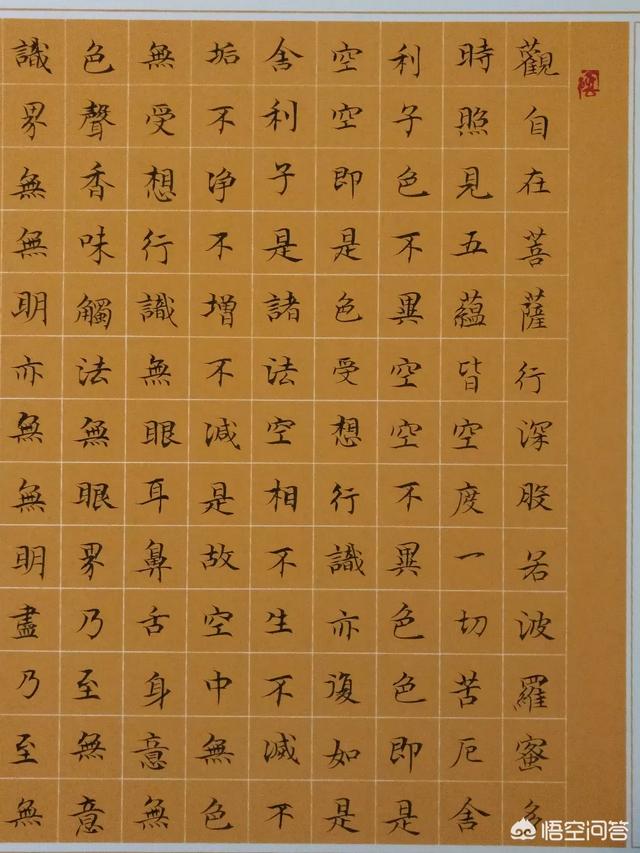 觀自在菩薩行深般若波羅蜜多
時照見五蘊皆空度一切苦厄舍
利子色不異空空不異色色即是
空空即是色受想行識亦復如是
舍利子是諸法空相不生不滅不
垢不净不增不減是故空中無色
無受想行識無眼耳鼻舌身意無
色聲香味觸法無眼界乃至無意
識界無無明亦無無明盡乃至無
悟空问答